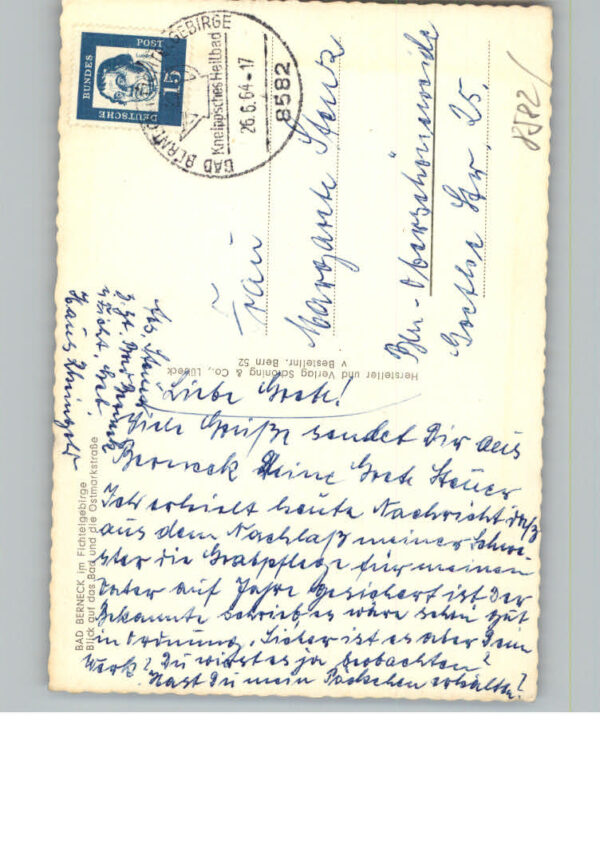 DEUTSCHE
BUNDES
POST
15
BAD BERNECK FICHTELGEBIRGE
Kneippsches Heilbad
26.6.64-17
8582
8582
Frau
Margarete
Bln-Oberschöneweide
Goethe Str. 25.
Hersteller und Verlag Schöning & Co., Lübeck
v Bestellnr. Bern 52
BAD BERNECK im Fichtelgebirge
Blick auf das Bad und die Ostmarkstraße
z. Zt. Bad Berneck
Haus
Liebe Grete!
Viele Grüße sendet Dir aus
Berneck Deine Grete Steuer
Ich erhielt heute Nachricht daß
aus dem Nachlaß meiner Schwe-
ster die Grabpflege für meinen
Vater auf Jahre gesichert ist. Der
Bekannte schrieb, es wäre schon gut
in Ordnung. Sicher ist es aber Dein
Werk? Du wirst es ja beobachten?
Hast Du mein Päckchen erhalten?